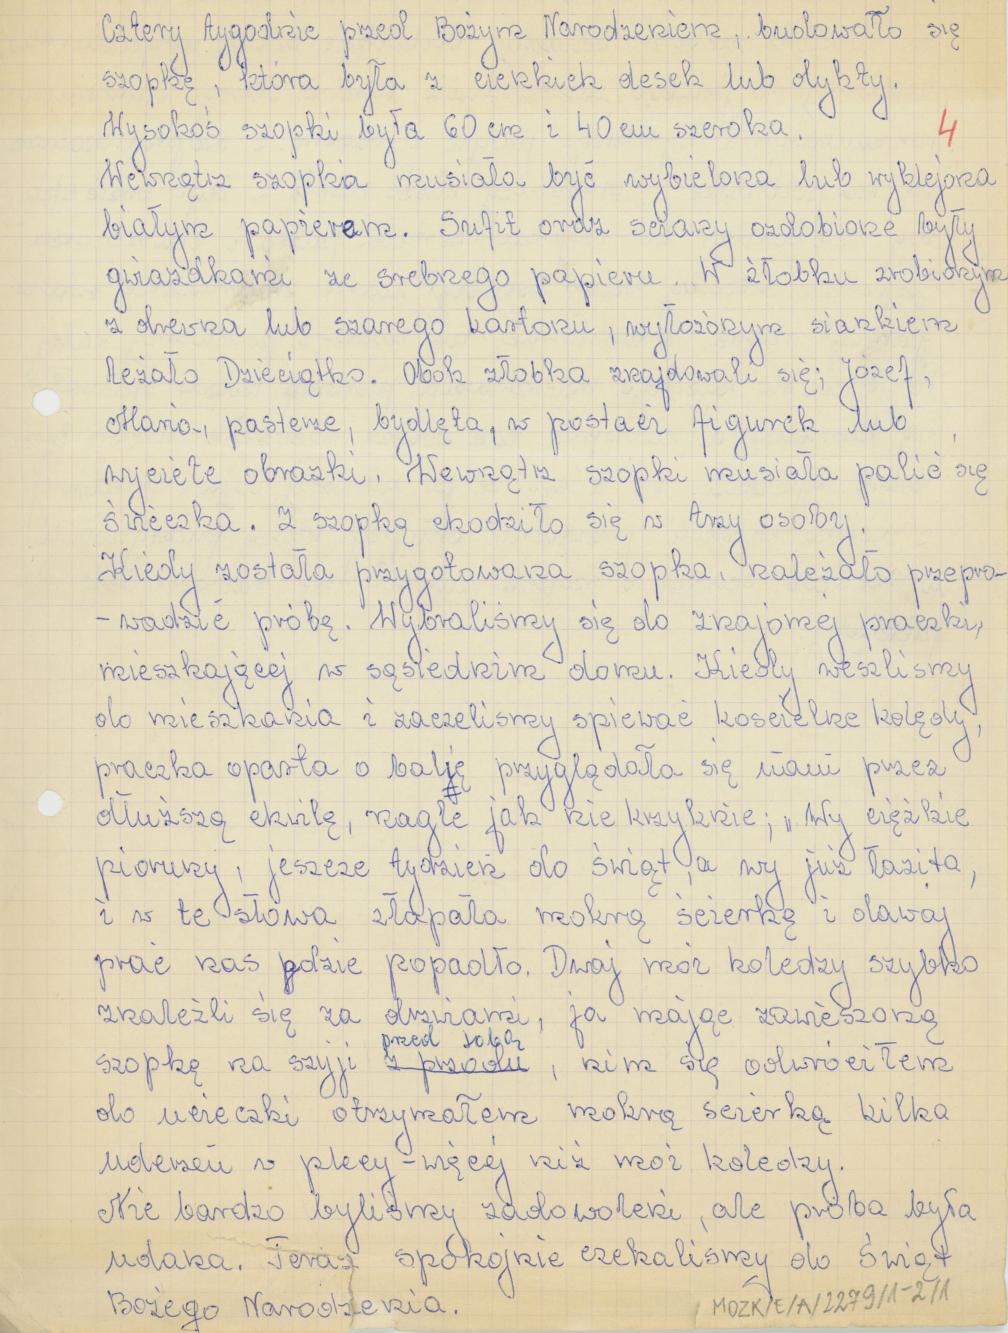 Cztery tygodnie przed Bożym Narodzeniem, budowało się
szopkę, która była z cienkich desek lub dykty.
Wysokoś szopki była 60 cm i 40 cm szeroka.
4
Wewnątrz szopkia musiała być wybielona lub wyklejona
białym papierem. Sufit oraz sciany ozdobione były
gwiazdkami ze srebrnego papieru. W żłobku zrobionym
z drewna lub szarego kartonu, wyłożónym siankiem
leżało Dzieciątko. Obok złobka znajdowali się; Józef,
Maria, pasterze, bydlęta, w postaci figurek lub
wyciete obrazki. Wewnątrz szopki musiała palić się
świeczka. Z szopką chodziło się w trzy osoby.
Kiedy została przygotowana szopka, należało przepro-
-wadzić próbę. Wybraliśmy się do znajomej praczki,
mieszkającej w sąsiednim domu. Kiedy weszlismy
do mieszkania i zaczelismy spiewać koscielne kolędy,
praczka oparta o balję przyglądała się nami przez
dłuższą chwilę, nagle jak nie krzyknie; „Wy ciężkie
pioruny, jeszcze tydzień do świąt, a wy już łazita,
i w te słowa złapała mokrą ścierkę i dawaj
prać nas gdzie popadło. Dwaj moi koledzy szybko
znaleźli się za drzwiami, ja mając zawieszoną
przed sobą
szopkę na szyji z przodu, nim się odwróciłem
do ucieczki otrzymałem mokrą scierką kilka
uderzeń w plecy – więcej niż moi koledzy.
Nie bardzo byliśmy zadowoleni, ale próba była
udana. Teraz spokojnie czekaliśmy do Świąt
Bożego Narodzenia.
MOZK/E/A/2279/1-2/1